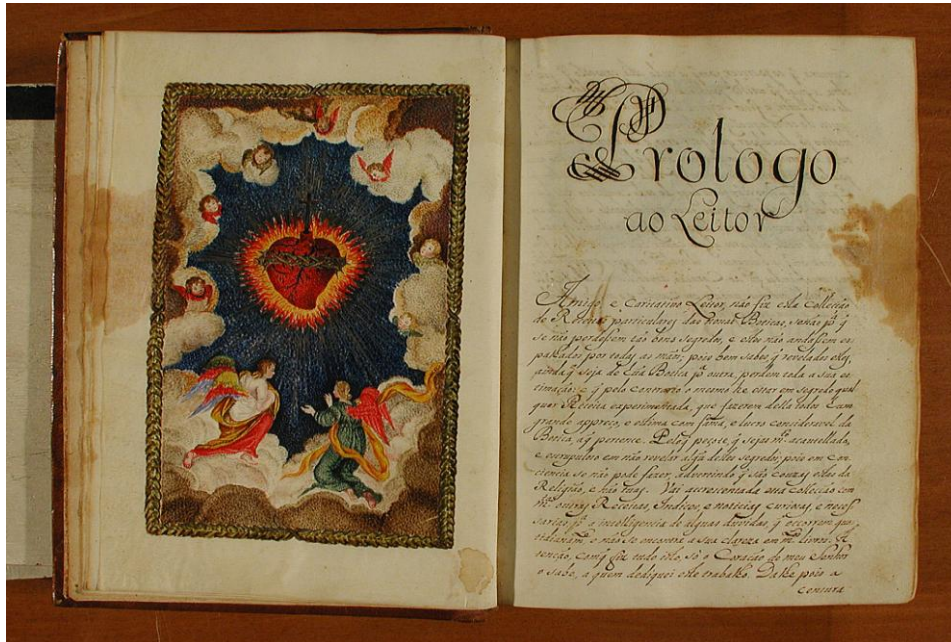 Prologo
ao Leitor
Amigo e Caritativo Leitor, não fiz esta Collecção
de Receitas particulares das nossas Boticas, senão pª q̃
se não perdessem tão bons segredos, e elles não andassem es
palhados por todas as mãos; pois bem sabes q̃ revelados elles,
ainda q̃ seja de hũa Botica pª outra, perdem toda a sua es
timação; e q̃ pelo contrario o mesmo he estar em segredo qual
quer Receita experimentada, que fazerem della todos hum
grande appreço, e estima com fama, e lucro consideravel da
Botica, a q̃ pertence. Peloq̃ peçote, q̃ sejas mᵗᵒ acautellado,
e escrupuloso em não revelar algũ destes segredos; pois em con
ciencia se não pode fazer, advertindo q̃ são couzas estas da
Religião, e não tuas. Vai accrescentada esta collecção com
mᵗᵃˢ outras Receitas, Indices, e noticias curiosas, e neces
sarias pª a intelligencia de algũas duvidas, q̃ occorrem que
 e não se encontra a sua clareza em mᵗᵒˢ livros. A
tenção, com q̃ fiz tudo isto, só o Coração de meu Senhor
o sabe, a quem dediquei este trabalho. Dalhe pois a
censura